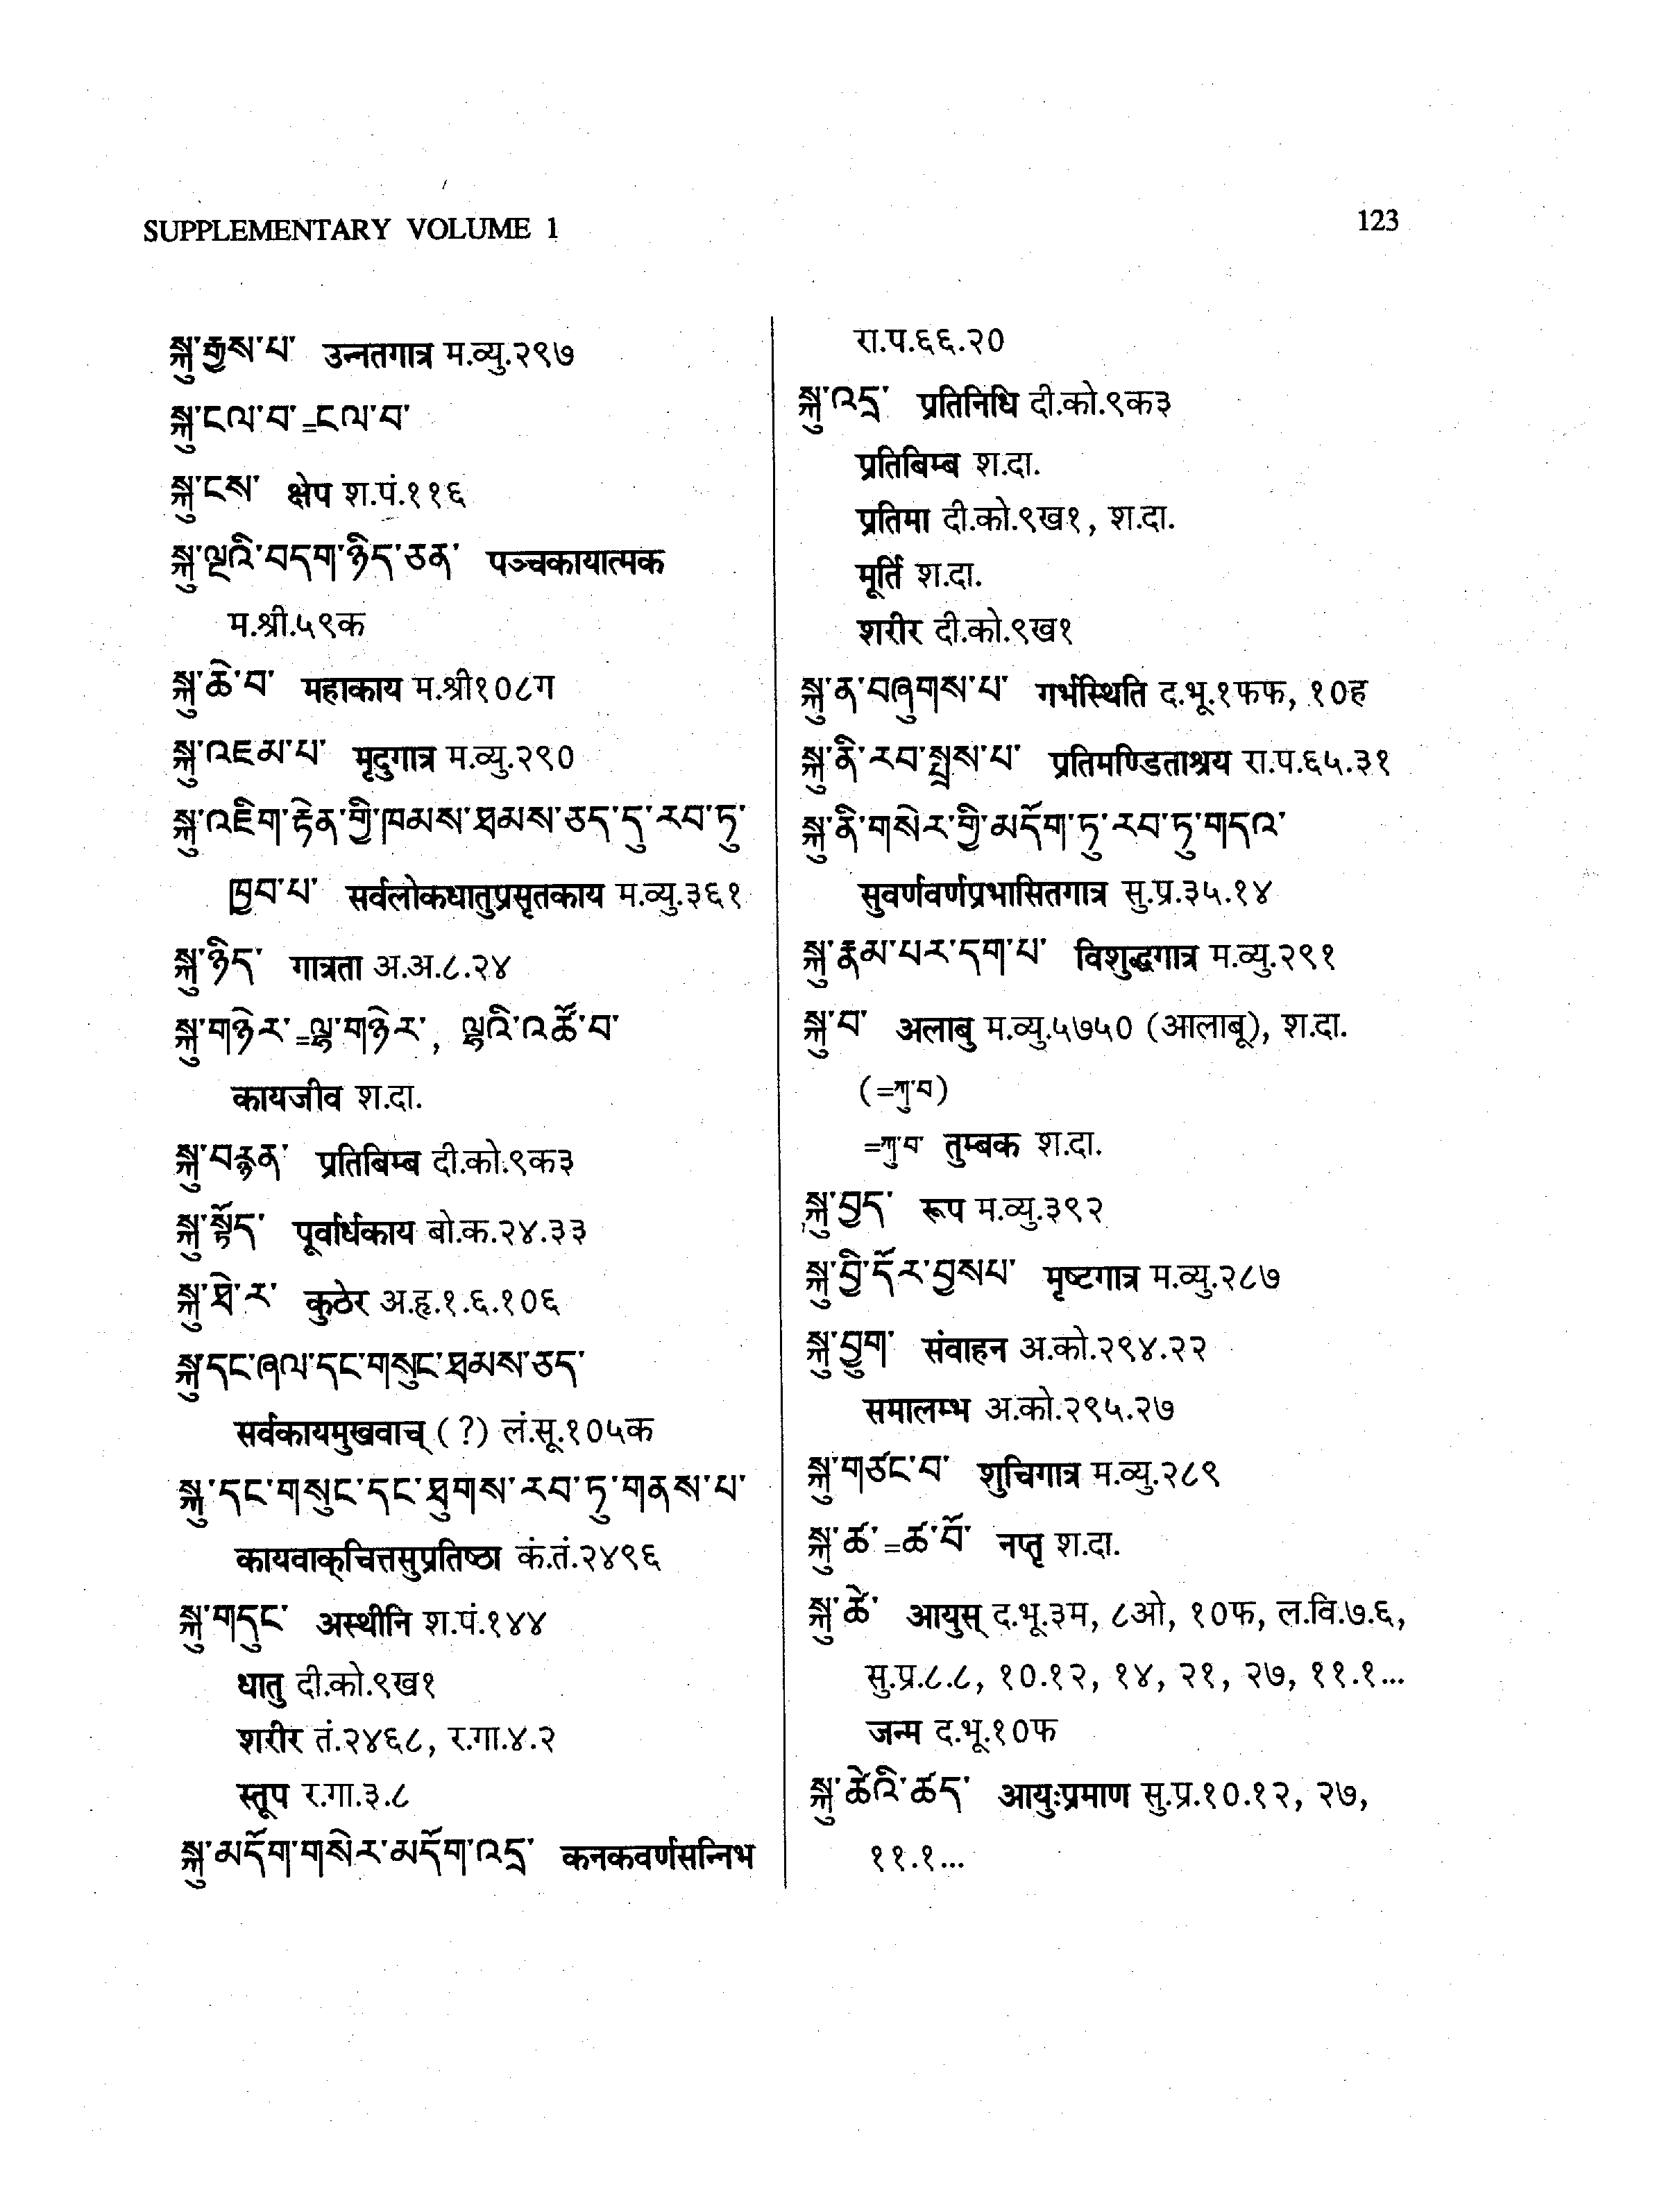 SUPPLEMENTARY VOLUME 1
123
སྐུ་རྒྱས་པ་ उन्नतगात्र म.व्यु.२९७
སྐུ་ངལ་བ་=ངལ་བ་
སྐུ་ངས་ क्षेप श.पं.११६
སྐུ་ལྔའི་བདག་ཉིད་ཅན་ पञ्चकायात्मक
म.श्री.५९क
སྐུ་ཆེ་བ་ महाकाय म.श्री१०८ग
སྐུ་འཇམ་པ་ मृदुगात्र म.व्यु.२९०
སྐུ་འཇིག་རྟེན་གྱི་ཁམས་ཐམས་ཅད་དུ་རབ་ཏུ་
ཁྱབ་པ་ सर्वलोकधातुप्रसृतकाय म.व्यु.३६१
སྐུ་ཉིད་ गात्रता अ.अ.८.२४
སྐུ་གཉེར་=ལྷ་གཉེར་, ལྷའི་འཚོ་བ་
कायजीव श.दा.
སྐུ་བརྙན་ प्रतिबिम्ब दी.को.९क३
སྐུ་སྟོད་ पूर्वार्धकाय बो.क.२४.३३
སྐུ་ཐེ་ར་ कुठेर अ.हृ.१.६.१०६
སྐུ་དང་ཞལ་དང་གསུང་ཐམས་ཅད་
सर्वकायमुखवाच् (?) लं.सू.१०५क
སྐུ་དང་གསུང་དང་ཐུགས་རབ་ཏུ་གནས་པ་
कायवाक्चित्तसुप्रतिष्ठा कं.तं.२४९६
སྐུ་གདུང་ अस्थीनि श.पं.१४४
धातु दी.को.९ख१
शरीर तं.२४६८, र.गा.४.२
स्तूप र.गा.३.८
སྐུ་མདོག་གསེར་མདོག་འདྲ་ कनकवर्णसन्निभ
रा.प.६६.२०
སྐུ་འདྲ་ प्रतिनिधि दी.को.९क३
प्रतिबिम्ब श.दा.
प्रतिमा दी.को.९ख१, श.दा.
मूर्ति श.दा.
शरीर दी.को.९ख१
སྐུ་ན་བཞུགས་པ་ गर्भस्थिति द.भू.१फफ, १०ह
སྐུ་ནི་རབ་སྤྲས་པ་ प्रतिमण्डिताश्रय रा.प.६५.३१
སྐུ་ནི་གསེར་གྱི་མདོག་ཏུ་རབ་ཏུ་གདའ་
सुवर्णवर्णप्रभासितगात्र सु.प्र.३५.१४
སྐུ་རྣམ་པར་དག་པ་ विशुद्धगात्र म.व्यु.२९१
སྐུ་བ་ अलाबु म.व्यु.५७५० (आलाबू), श.दा.
(=ཀུ་བ)
=ཀུ་བ་ तुम्बक श.दा.
སྐུ་བྱད་ रूप म.व्यु.३९२
སྐུ་བྱི་དོར་བྱསཔ་ मृष्टगात्र म.व्यु.२८७
སྐུ་བྱུག་ संवाहन अ.को.२९४.२२
समालम्भ अ.को.२९५.२७
སྐུ་གཙང་བ་ शुचिगात्र म.व्यु.२८९
སྐུ་ཚ་=ཚ་བོ་ नप्तृ श.दा.
སྐུ་ཚེ་ आयुस् द.भू.३म, ८ओ, १०फ, ल.वि.७.६,
सु.प्र.८.८, १०.१२, १४, २१, २७, ११.१...
जन्म द.भू.१०फ
སྐུ་ཚེའི་ཚད་ आयुःप्रमाण सु.प्र.१०.१२, २७,
११.१...